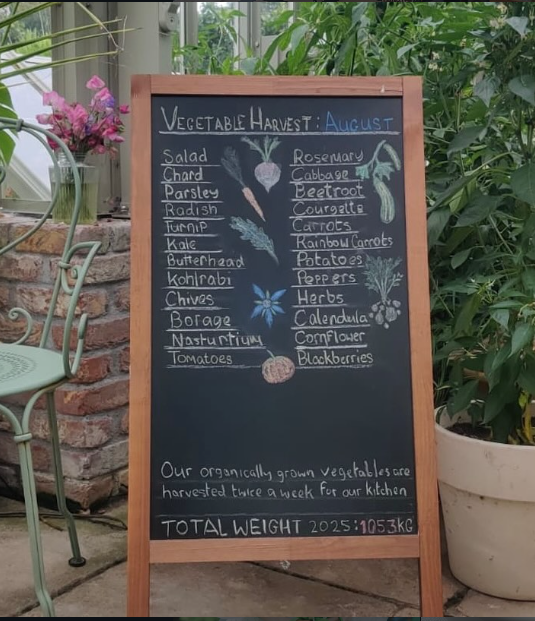 VEGETABLE HARVEST: AUGUST
Salad
Chard
Parsley
Radish
Turnip
Kale
Butterhead
Kohlrabi
Chives
Borage
Nasturtium
Tomatoes
Rosemary
Cabbage
Beetroot
Courgette
Carrots
Rainbow Carrots
Potatoes
Peppers
Herbs
Calendula
Cornflower
Blackberries
Our organically grown vegetables are
harvested twice a week for our kitchen
TOTAL WEIGHT 2025:1053KG